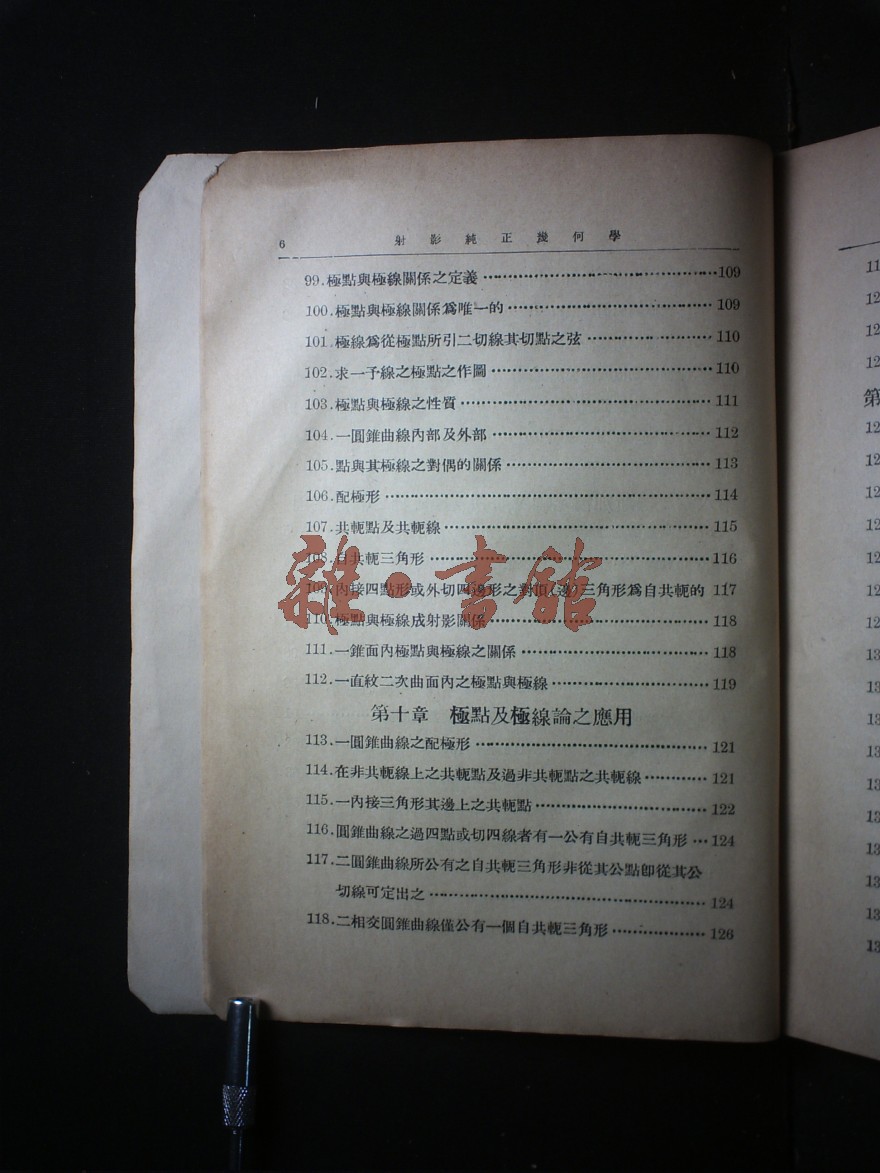 6 射影純正幾何學
99.極點與極線關係之定義………109
100.極點與極線關係爲唯一的………109
101.極線爲從極點所引二切線其切點之弦………110
102.求一予線之極點之作圖………110
103.極點與極線之性質………111
104.一圓錐曲線內部及外部………112
105.點與其極線之對偶的關係………113
106.配極形………114
107.共軛點及共軛線………115
108.自共軛三角形………116
109.內接四點形或外切四邊形之對頂(邊)三角形爲自共軛的 117
110.極點與極線成射影關係………118
111.一錐面內極點與極線之關係………118
112.一直紋二次曲面內之極點與極線………119
第十章 極點及極線論之應用
113.一圓錐曲線之配極形………121
114.在非共軛線上之共軛點及過非共軛點之共軛線………121
115.一內接三角形其邊上之共軛點………122
116.圓錐曲線之過四點或切四線者有一公有自共軛三角形…124
117.二圓錐曲線所公有之自共軛三角形非從其公點卽從其公
切線可定出之………124
118.二相交圓錐曲線僅公有一個自共軛三角形………126
雜·書館
11
12
12
12
第
12
12
12
12
12
12
12
13
13
13
13
13
13
13
13
13
13